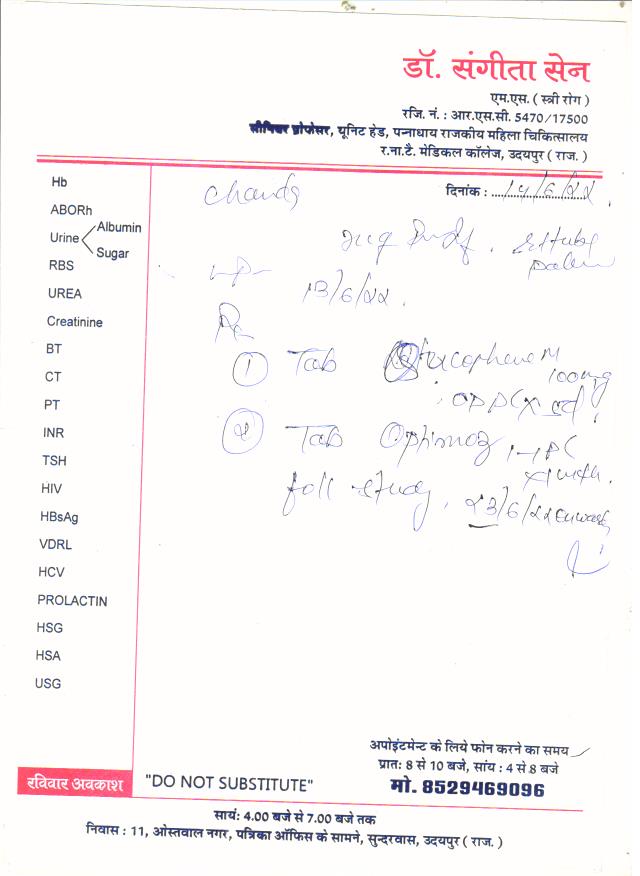 डॉ. संगीता सेन
एम.एस. ( स्त्री रोग )
रजि. नं. : आर.एस.सी. 5470/17500
सीनियर प्रोफेसर, यूनिट हेड, पन्नाधाय राजकीय महिला चिकित्सालय
र.ना.टै. मेडिकल कॉलेज, उदयपुर ( राज. )
दिनांक : 14/6/22
Hb
ABORh
Urine Albumin
Sugar
RBS
UREA
Creatinine
BT
CT
PT
INR
TSH
HIV
HBsAg
VDRL
HCV
PROLACTIN
HSG
HSA
USG
13/6/22.
Rx
① Tab
100mg
② Tab
foll study, 23/6/22
अपोइंटमेन्ट के लिये फोन करने का समय
प्रात: 8 से 10 बजे, सांय : 4 से 8 बजे
मो. 8529469096
रविवार अवकाश "DO NOT SUBSTITUTE"
सायं: 4.00 बजे से 7.00 बजे तक
निवास : 11, ओस्तवाल नगर, पत्रिका ऑफिस के सामने, सुन्दरवास, उदयपुर ( राज. )